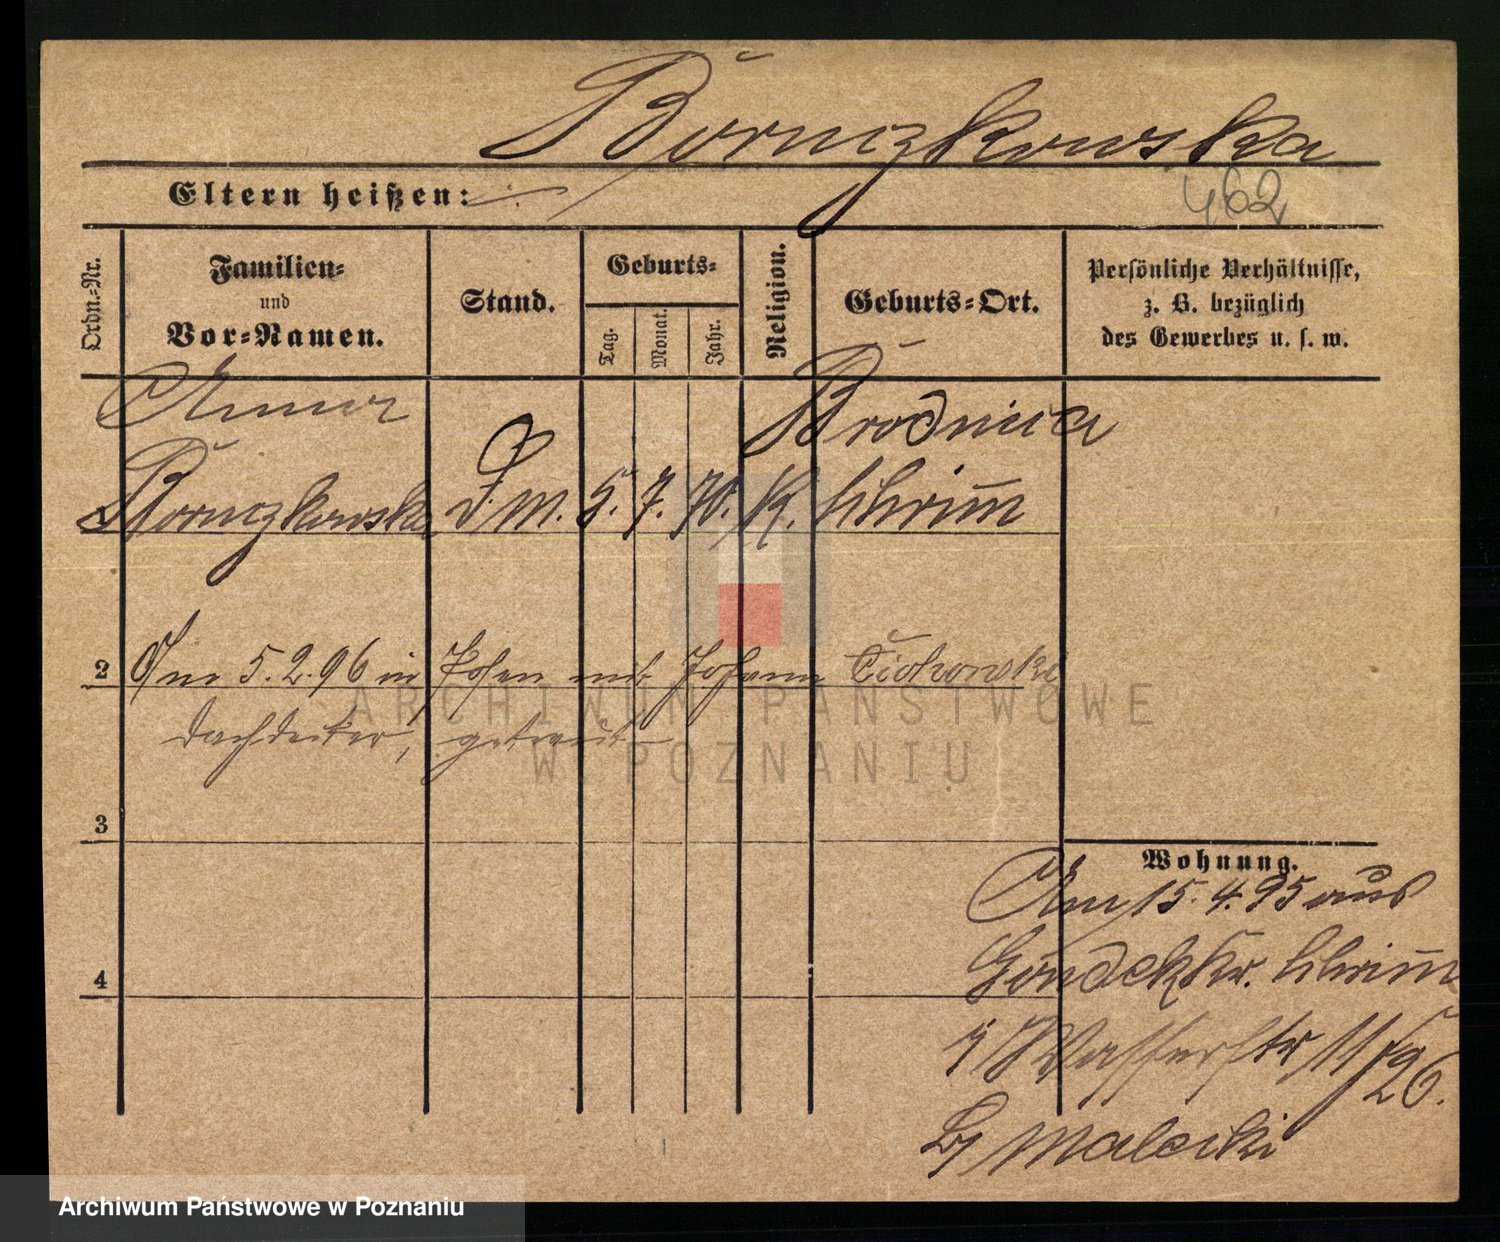 Bornczkowska
Eltern heißen: ./.
462
Ordn.=Nr.
Familien=
und
Vor=Namen.
Stand.
Geburts=
Tag.
Monat.
Jahr.
Religion.
Geburts=Ort.
Persönliche Verhältnisse,
z. B. bezüglich
des Gewerbes u. s. w.
Anna Brodnica
1 Bornczkowska D. M. 5. 7. 70. K. Schrimm
2 Am 5. 2. 96 in Posen mit Johann Cichowski
Dachdecker, getraut
3
Wohnung.
Am 15. 4. 95 aus
Gondek Kr. Schrimm
4
Wasserstr 11
96.
b/ Malecki
ARCHIWUM PAŃSTWOWE
W POZNANIU
Archiwum Państwowe w Poznaniu